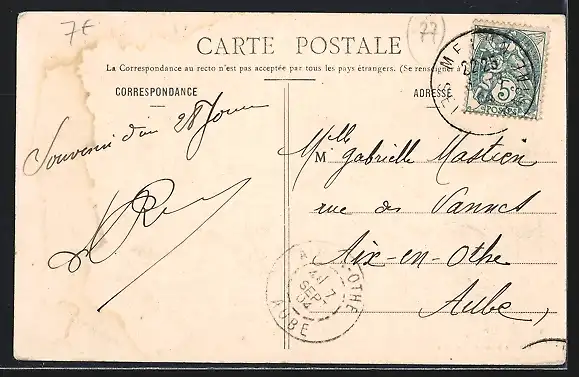 7€
27
CARTE POSTALE
La Correspondance au recto n'est pas acceptée par tous les pays étrangers. (Se renseigner à
CORRESPONDANCE
ADRESSE
MEL
22 25
5c
POSTES
Souvenir d'un 28 Jours
Mlle Gabrielle Mastien
rue de Vannes
Aix-en-Othe
Aube
OTHE
7
SEPT
04
AUBE